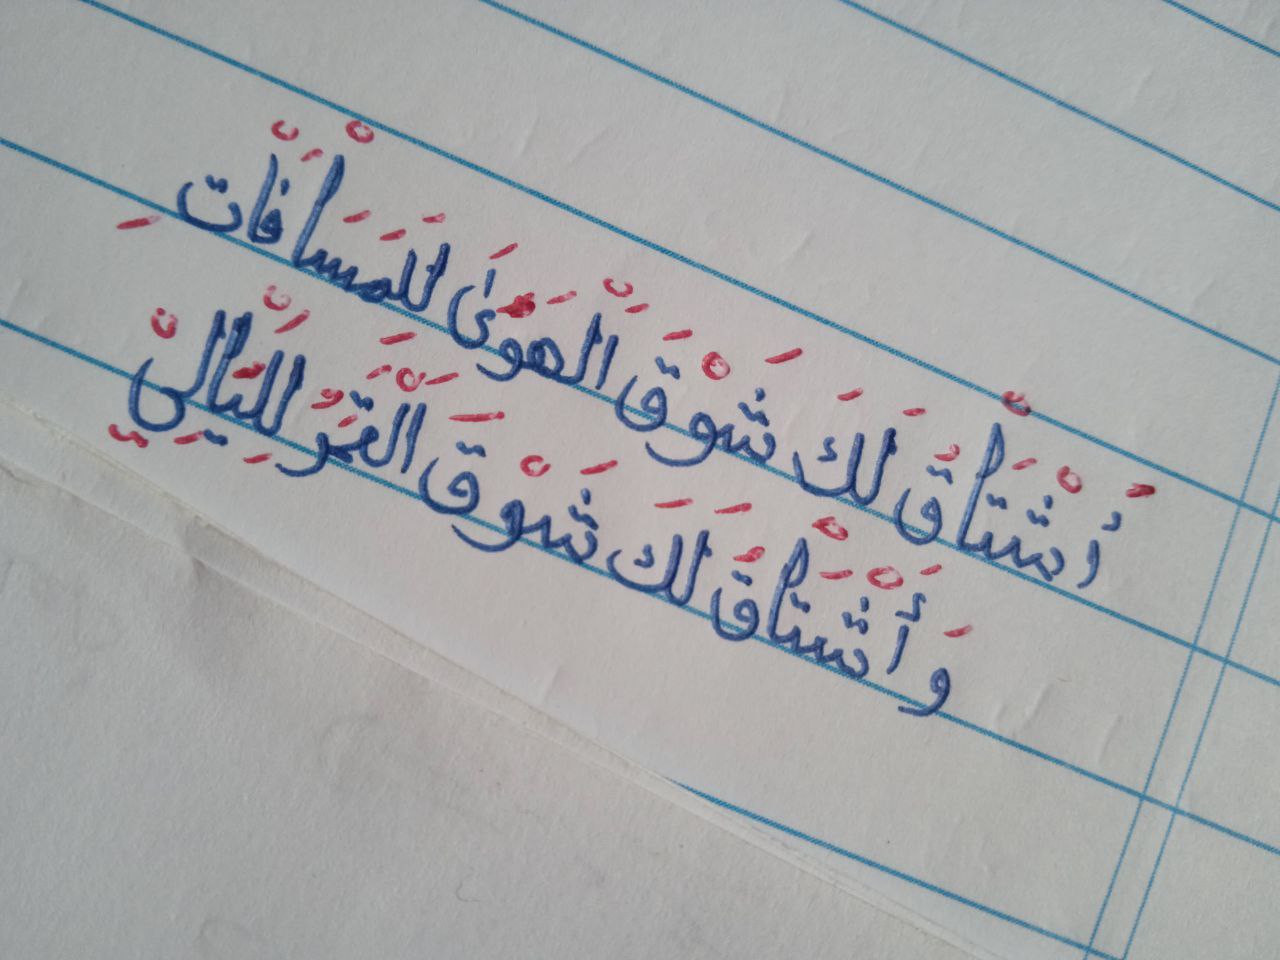 أَشْتَاْقُ لَكَ شَوْقَ الْهَوَىٰ لَلمَسَاْفَاْتِ
وَ أَشْتَاْقُ لَكَ شَوْقَ الْقَمَرُ للِيَّالِيْ